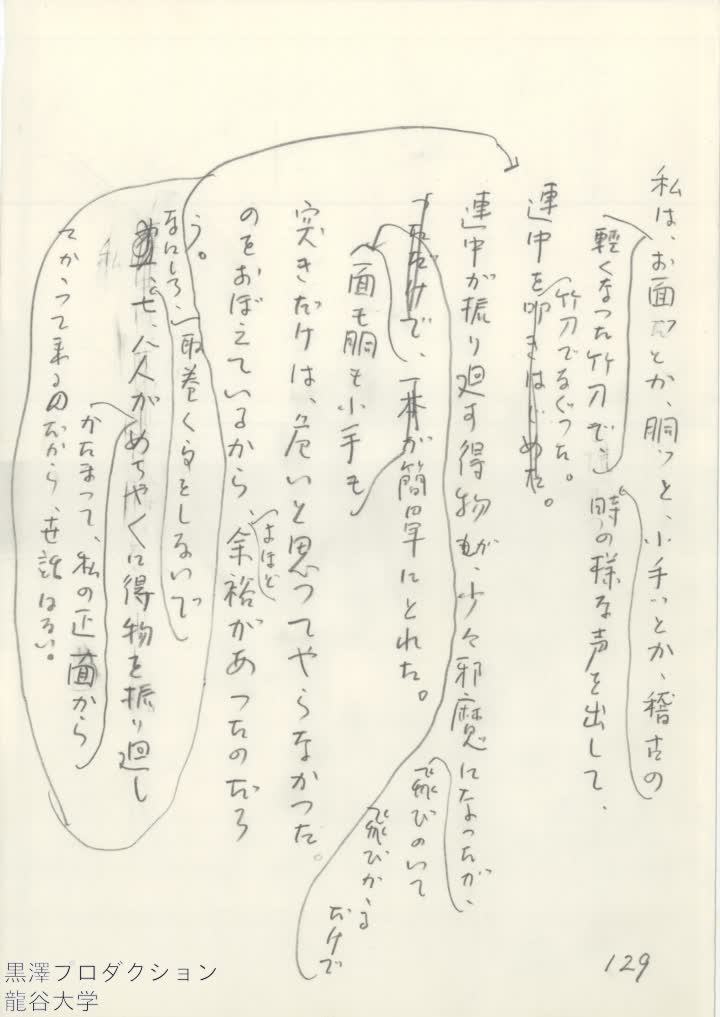 私は、お面ッとか、胴ッと、小手ッとか、稽古の
時の様な声を出して、
軽くなった竹刀で、
竹刀でなぐった。
連中を叩きはじめた。
連中が振り廻す得物が、少々邪魔になったが、
飛びのいて
飛びかゝる
だけで
で、一本が簡単にとれた。
面も胴も小手も
突きだけは、危いと思ってやらなかった。
のをおぼえているから、余裕があったのだろ
よほど
う。
なにしろ、取巻く事をしないで
七、八人がめちゃくに得物を振り廻し
かたまって、私の正面から
てかゝって来るのだから、世話はない。
129
黒澤プロダクション
龍谷大学